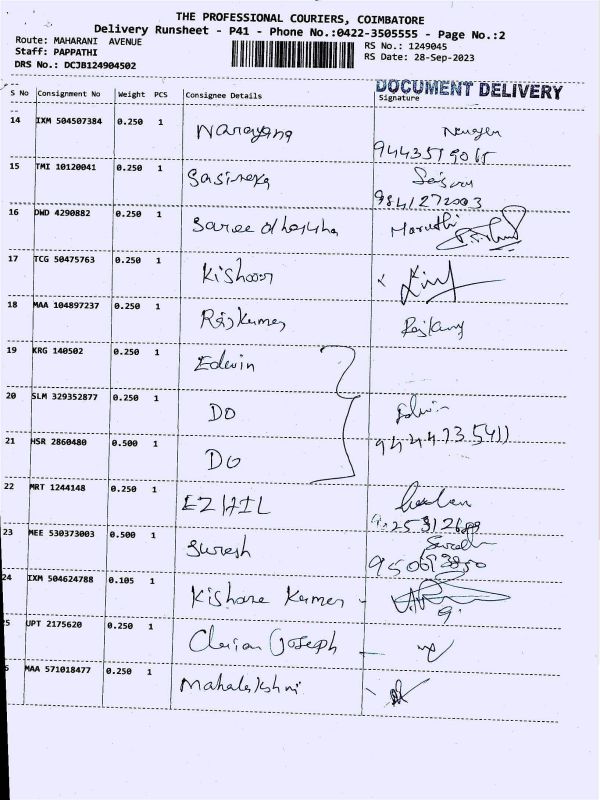 THE PROFESSIONAL COURIERS, COIMBATORE
Delivery Runsheet - P41 - Phone No.:0422-3505555 - Page No.:2
Route: MAHARANI AVENUE
Staff: PAPPATHI
DRS No.: DCJB124904502
RS No.: 1249045
RS Date: 28-Sep-2023
DOCUMENT DELIVERY
S No Consignment No Weight PCS Consignee Details Signature
14 IXM 504507384 0.250 1 Narayana
15 TMI 10120041 0.250 1 Sasireka
9841272003
16 DWD 4290882 0.250 1 Maruthi
17 TCG 50475763 0.250 1 Kishoor
18 MAA 104897237 0.250 1 Rajkumar
19 KRG 140502 0.250 1 Edwin
20 SLM 329352877 0.250 1 DO Edwin
21 HSR 2860480 0.500 1 DO 9444735411
22 MRT 1244148 0.250 1 EZHIL
23 MEE 530373003 0.500 1 Suresh
24 IXM 504624788 0.105 1 Kishore Kumar
5 UPT 2175620 0.250 1 Joseph
6 MAA 571018477 0.250 1 Mahalakshmi